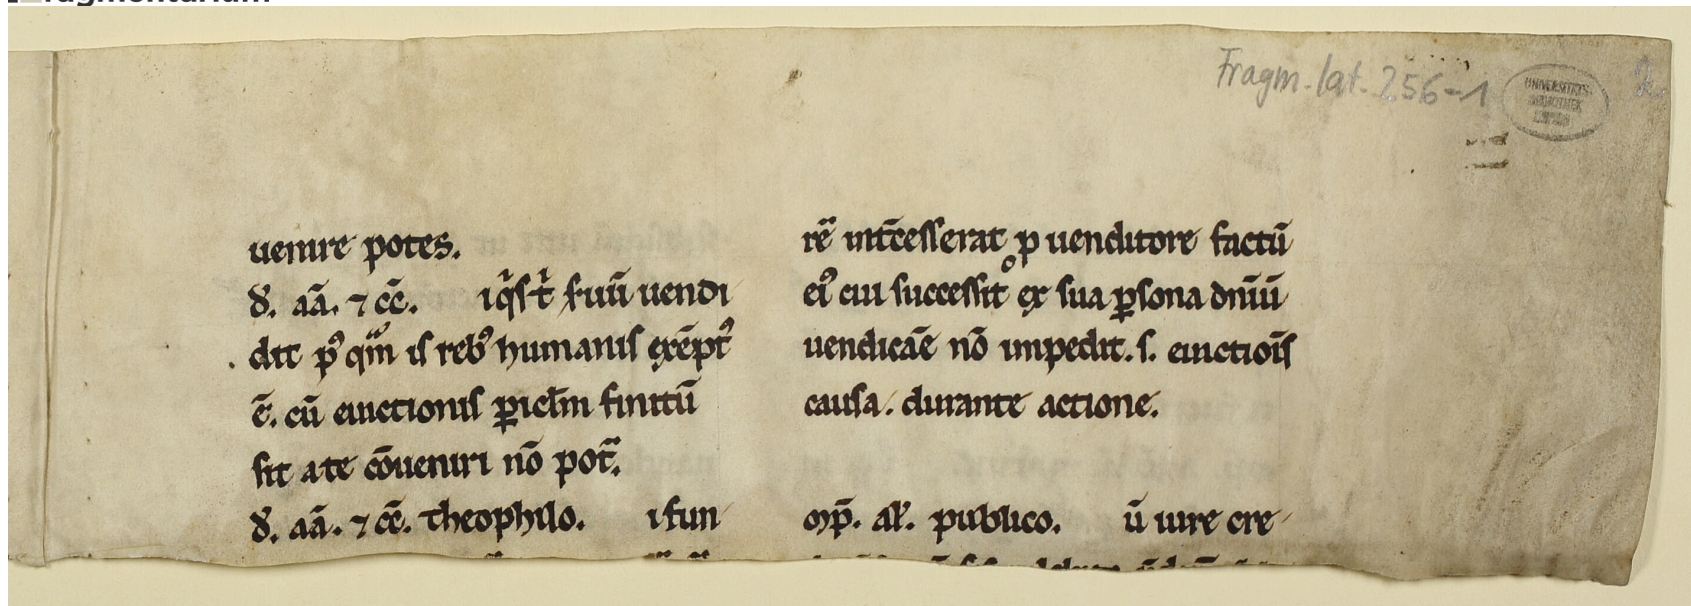 Fragm. lat. 256-1
2
UNIVERSITÄTS-
BIBLIOTHEK
uenire potes.
d̄. aā. ⁊ cc̄. iq̄st̄ suū uendi
dit pꝰ qm̊ is rebꝰ humanis exēptꝰ
ē. cū euictionis ꝑiclm̄ finitū
sit a te cōueniri nō pot̄.
d̄. aā. ⁊ cc̄. theophilo. i fun
rē int̄cesserat p uenditore factū
eiꝰ cui successit ex sua ꝑsona dn̄iū
uendicāe nō impedit. s. euictiōis
causa. durante actione.
Imp̄. al'. publico. ū iure cre